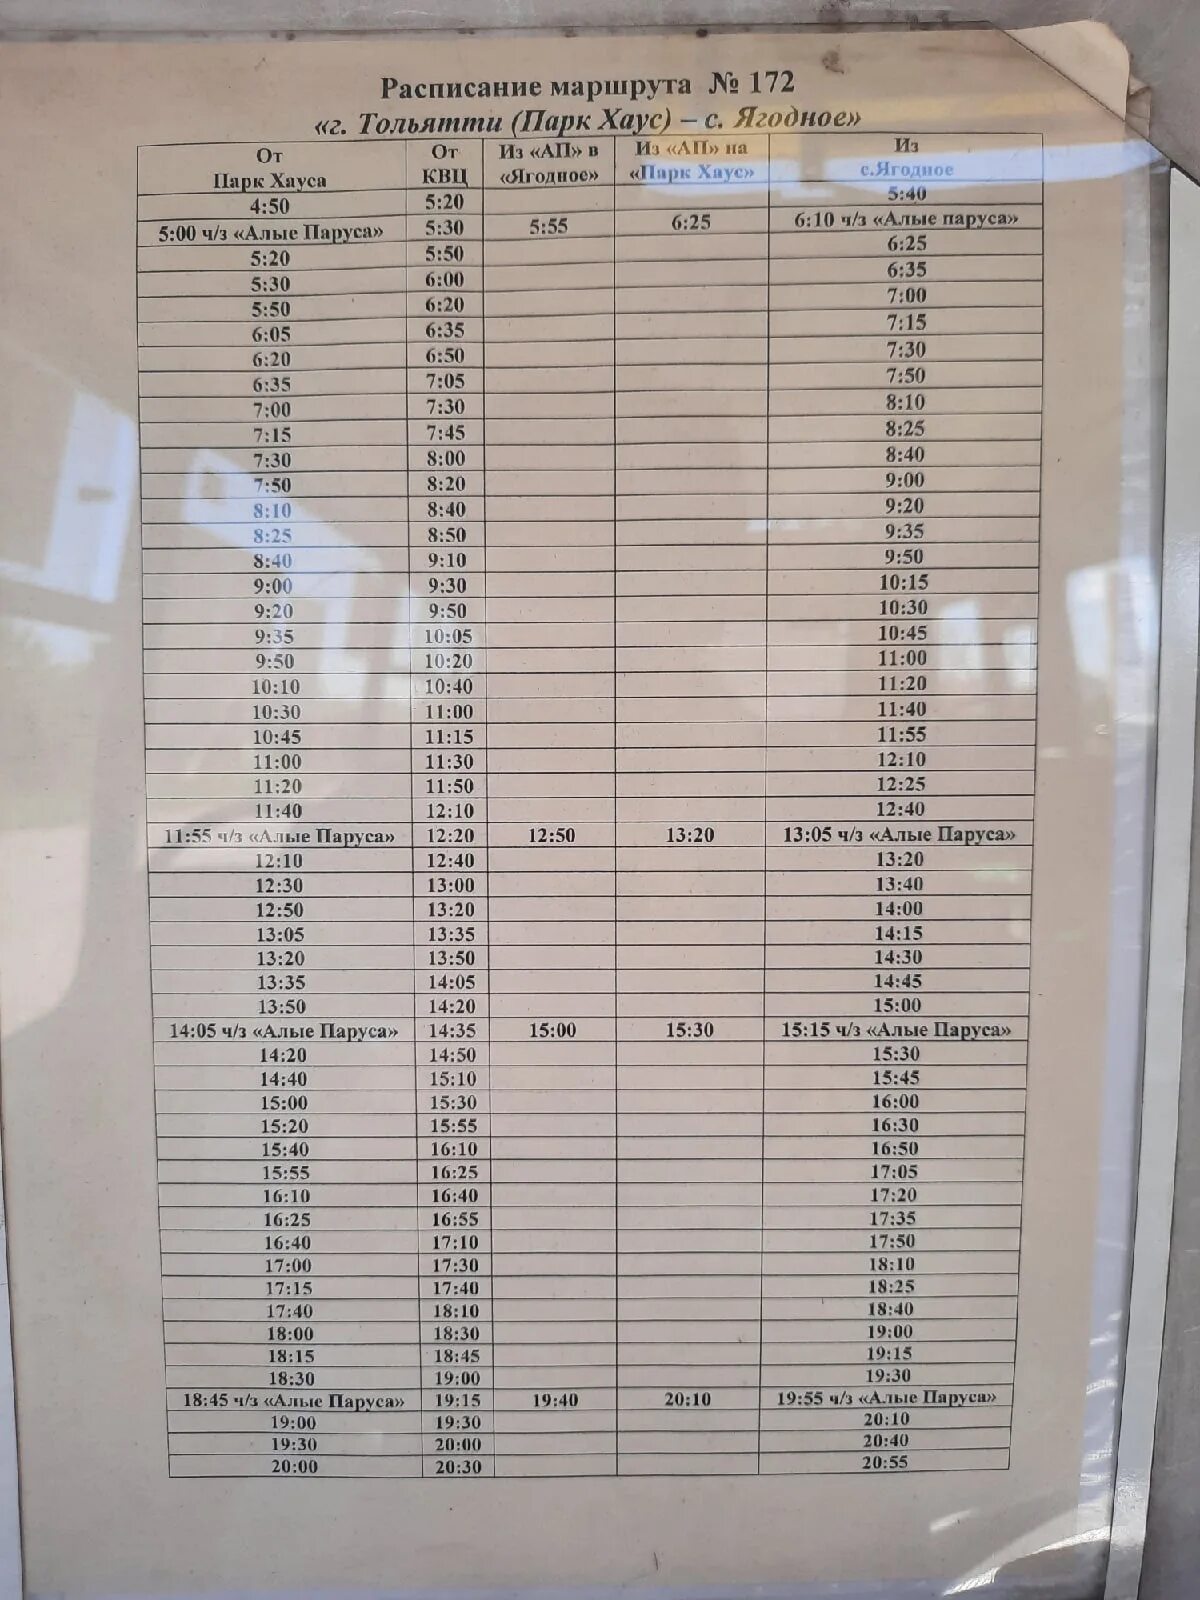 Расписание маршрута № 172
«г. Тольятти (Парк Хаус) – с. Ягодное»
От Парк Хауса От КВЦ Из «АП» в «Ягодное» Из «АП» на «Парк Хаус» Из с.Ягодное
4:50 5:20 5:40
5:00 ч/з «Алые Паруса» 5:30 5:55 6:25 6:10 ч/з «Алые паруса»
5:20 5:50 6:25
5:30 6:00 6:35
5:50 6:20 7:00
6:05 6:35 7:15
6:20 6:50 7:30
6:35 7:05 7:50
7:00 7:30 8:10
7:15 7:45 8:25
7:30 8:00 8:40
7:50 8:20 9:00
8:10 8:40 9:20
8:25 8:50 9:35
8:40 9:10 9:50
9:00 9:30 10:15
9:20 9:50 10:30
9:35 10:05 10:45
9:50 10:20 11:00
10:10 10:40 11:20
10:30 11:00 11:40
10:45 11:15 11:55
11:00 11:30 12:10
11:20 11:50 12:25
11:40 12:10 12:40
11:55 ч/з «Алые Паруса» 12:20 12:50 13:20 13:05 ч/з «Алые Паруса»
12:10 12:40 13:20
12:30 13:00 13:40
12:50 13:20 14:00
13:05 13:35 14:15
13:20 13:50 14:30
13:35 14:05 14:45
13:50 14:20 15:00
14:05 ч/з «Алые Паруса» 14:35 15:00 15:30 15:15 ч/з «Алые Паруса»
14:20 14:50 15:30
14:40 15:10 15:45
15:00 15:30 16:00
15:20 15:55 16:30
15:40 16:10 16:50
15:55 16:25 17:05
16:10 16:40 17:20
16:25 16:55 17:35
16:40 17:10 17:50
17:00 17:30 18:10
17:15 17:40 18:25
17:40 18:10 18:40
18:00 18:30 19:00
18:15 18:45 19:15
18:30 19:00 19:30
18:45 ч/з «Алые Паруса» 19:15 19:40 20:10 19:55 ч/з «Алые Паруса»
19:00 19:30 20:10
19:30 20:00 20:40
20:00 20:30 20:55